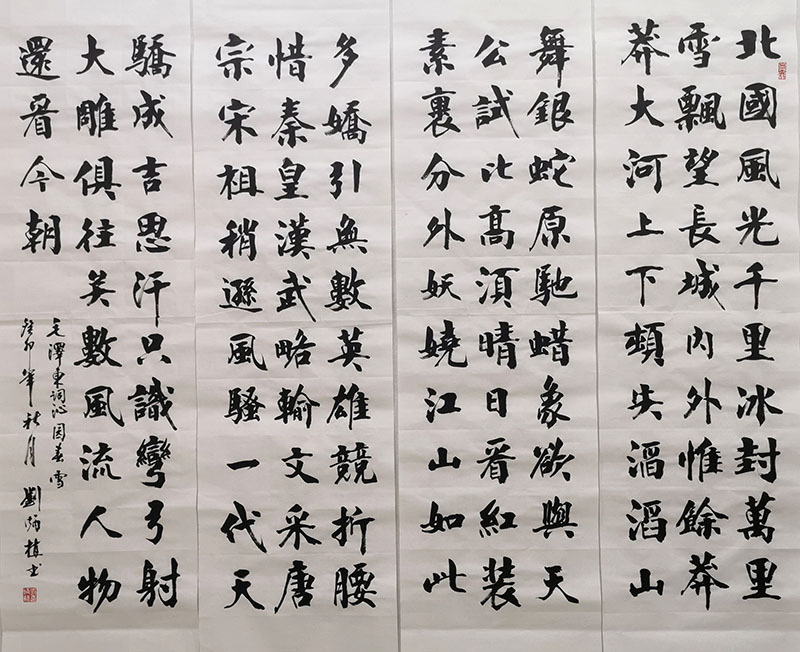 北國風光千里冰封萬里
雪飄望長城內外惟餘莽
莽大河上下頓失滔滔山
舞銀蛇原馳蜡象欲與天
公試比高須晴日看紅裝
素裹分外妖嬈江山如此
多嬌引無數英雄競折腰
惜秦皇漢武略輸文采唐
宗宋祖稍遜風騷一代天
驕成吉思汗只識彎弓射
大雕俱往矣數風流人物
還看今朝
毛澤東詞沁园春雪
癸卯年秋月 劉炳植书